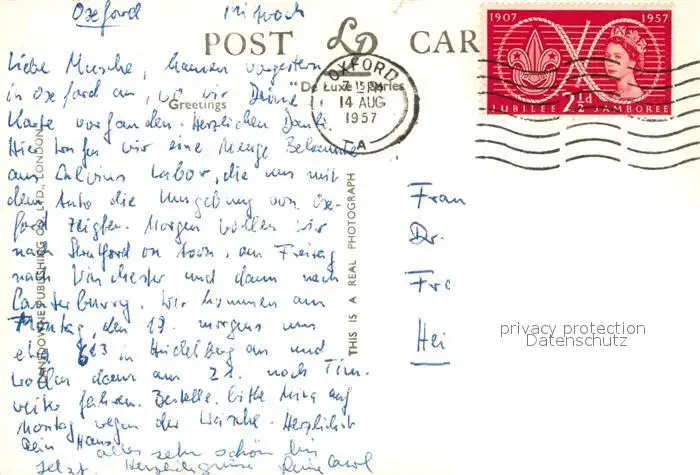 Oxford Mittwoch
POST CARD
"De Luxe" Series
Greetings
LANSDOWNE PUBLISHING CO., LTD., LONDON
THIS IS A REAL PHOTOGRAPH
1907 1957
JUBILEE 2½d JAMBOREE
OXFORD
7 15 PM
14 AUG
1957
A
Liebe Musche, kamen vorgestern
in Oxford an, wo wir Deine
Karte vorfanden. Herzlichen Dank.
Hier trafen wir eine Menge Bekannte
aus Calvins Labor, die uns mit
dem Auto die Umgebung von Ox-
ford zeigten. Morgen wollen wir
nach Stratford on Avon, am Freitag
nach Winchester und dann nach
Canterbury. Wir kommen am
Montag, den 19. morgens um
etwa in Heidelberg an und
wollen dann am 21. nach
fahren. Bestelle bitte auf
Montag wegen der Wäsche. Herzlichst
Dein Hans
alles sehr schön bis
jetzt. Herzliche Grüsse Deine Carol
Frau
Dr.
Fr
Hei
privacy protection
Datenschutz